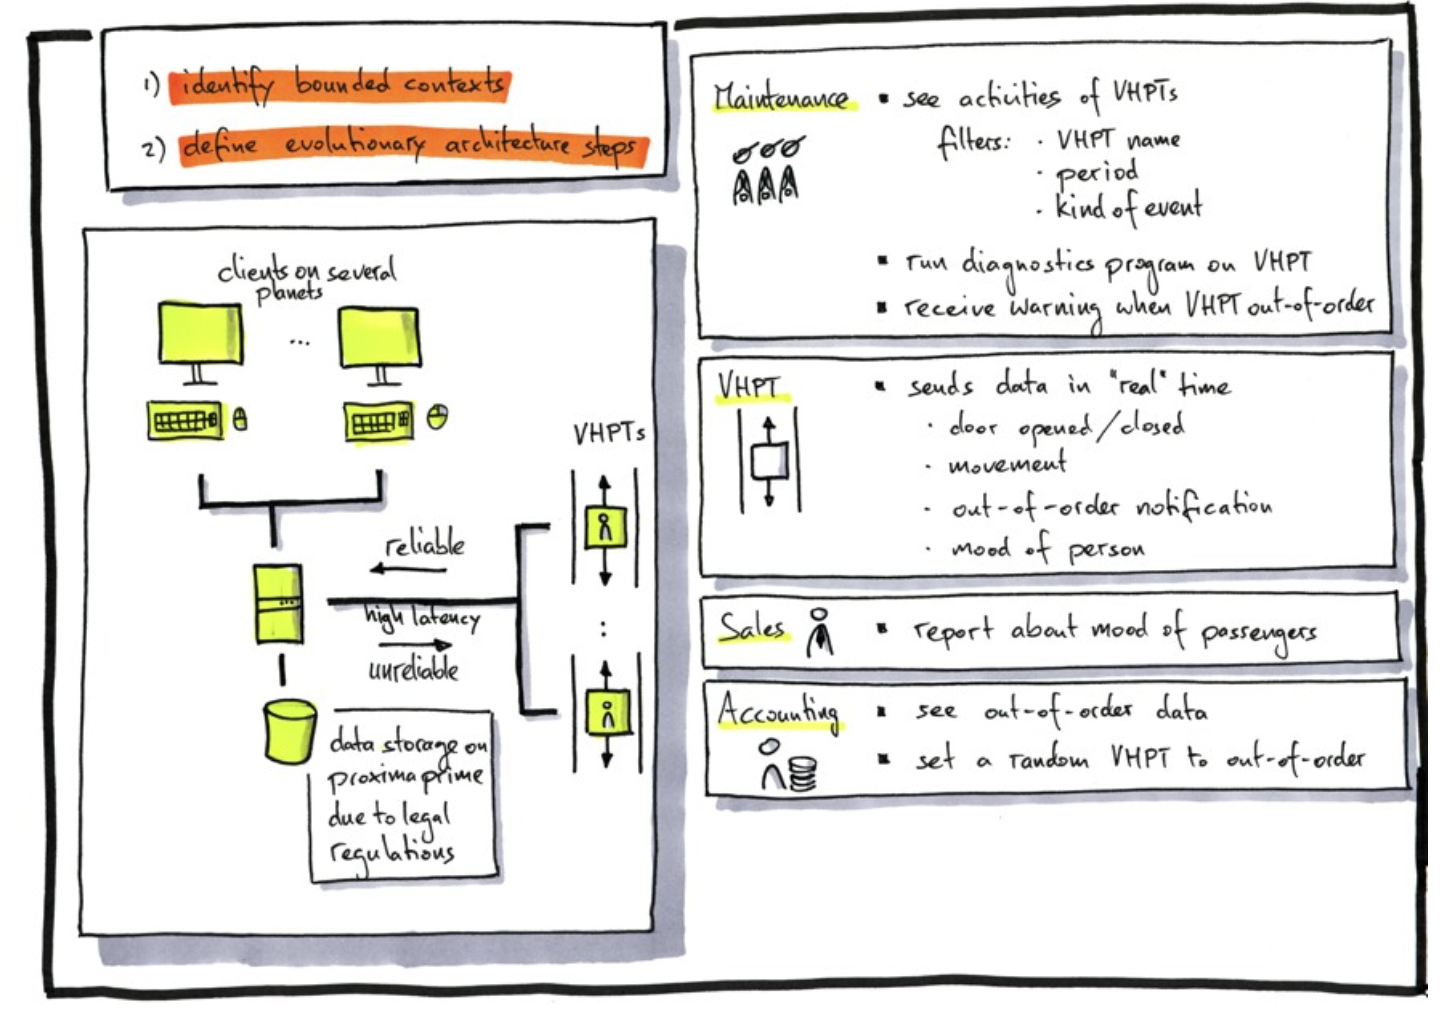 1) identify bounded contexts
2) define evolutionary architecture steps
clients on several
planets
...
VHPTs
reliable
high latency
unreliable
:
data storage on
proxima prime
due to legal
regulations
Maintenance ▪ see activities of VHPTs
filters: · VHPT name
· period
· kind of event
▪ run diagnostics program on VHPT
▪ receive warning when VHPT out-of-order
VHPT ▪ sends data in "real" time
· door opened/closed
· movement
· out-of-order notification
· mood of person
Sales ▪ report about mood of passengers
Accounting ▪ see out-of-order data
▪ set a random VHPT to out-of-order